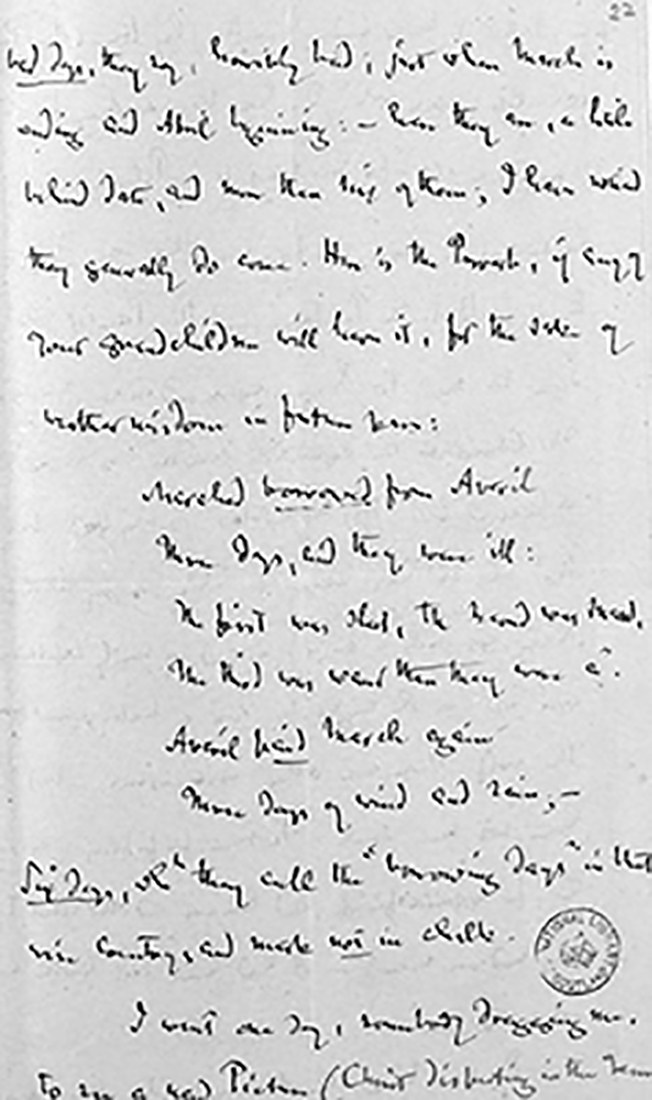 bad days, they say, horribly bad, just when March is
ending and April beginning:— here they are, a little
behind date, and more than six of them; I hear
they generally do come. Here is the Proverb, if any of
your grandchildren will learn it, for the sake of
weather wisdom in future years:
borrowed from Averil
Three days, and they were ill:
The first was sleet, the second was snaw,
The third was waur than they were a'.
Averil paid March again
Three days of wind and rain;—
Six days, whh they call the "borrowing days" in that
wise Country, and mark not in chalk.
I went one day, somebody dragging me,
to see a new Picture (Christ disputing in the Tem
22
NATIONAL LIBRARY